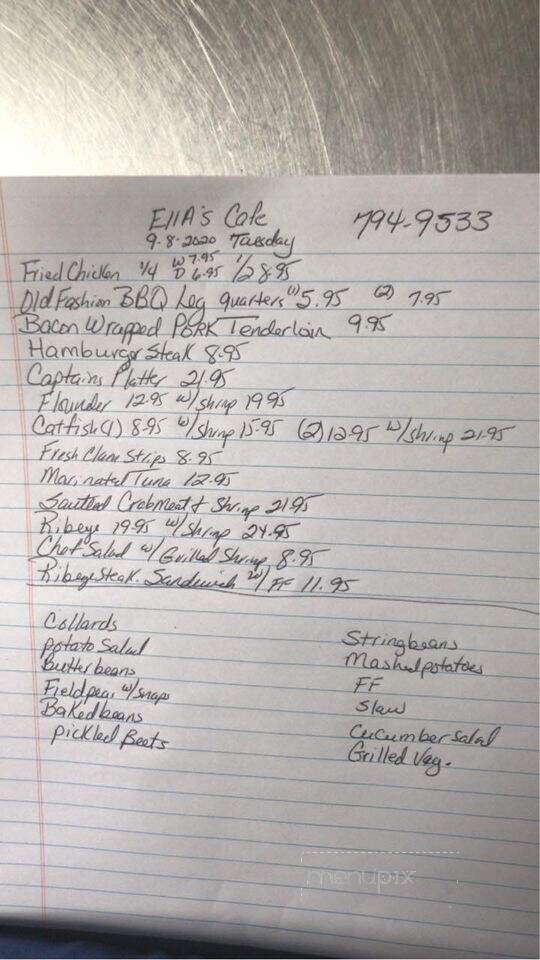 EllA's Cafe 794-9533
9-8-2020 Tuesday
Fried Chicken 1/4 W 7.95 D 6.95 1/2 8.95
Old Fashion BBQ Leg quarters (1) 5.95 (2) 7.95
Bacon Wrapped PORK Tenderloin 9.95
Hamburger Steak 8.95
Captains Platter 21.95
Flounder 12.95 w/shrimp 19.95
Catfish (1) 8.95 w/shrimp 15.95 (2) 12.95 w/shrimp 21.95
Fresh Clam Strips 8.95
Marinated Tuna 12.95
Sauteed Crabmeat & Shrimp 21.95
Ribeye 19.95 w/shrimp 24.95
Chef Salad w/ Grilled Shrimp 8.95
Ribeye Steak Sandwich w/ FF 11.95
Collards
Potato Salad
Butterbeans
Fieldpeas w/snaps
Baked beans
pickled Beets
Stringbeans
Mashed potatoes
FF
Slaw
Cucumber Salad
Grilled Veg.
menupix